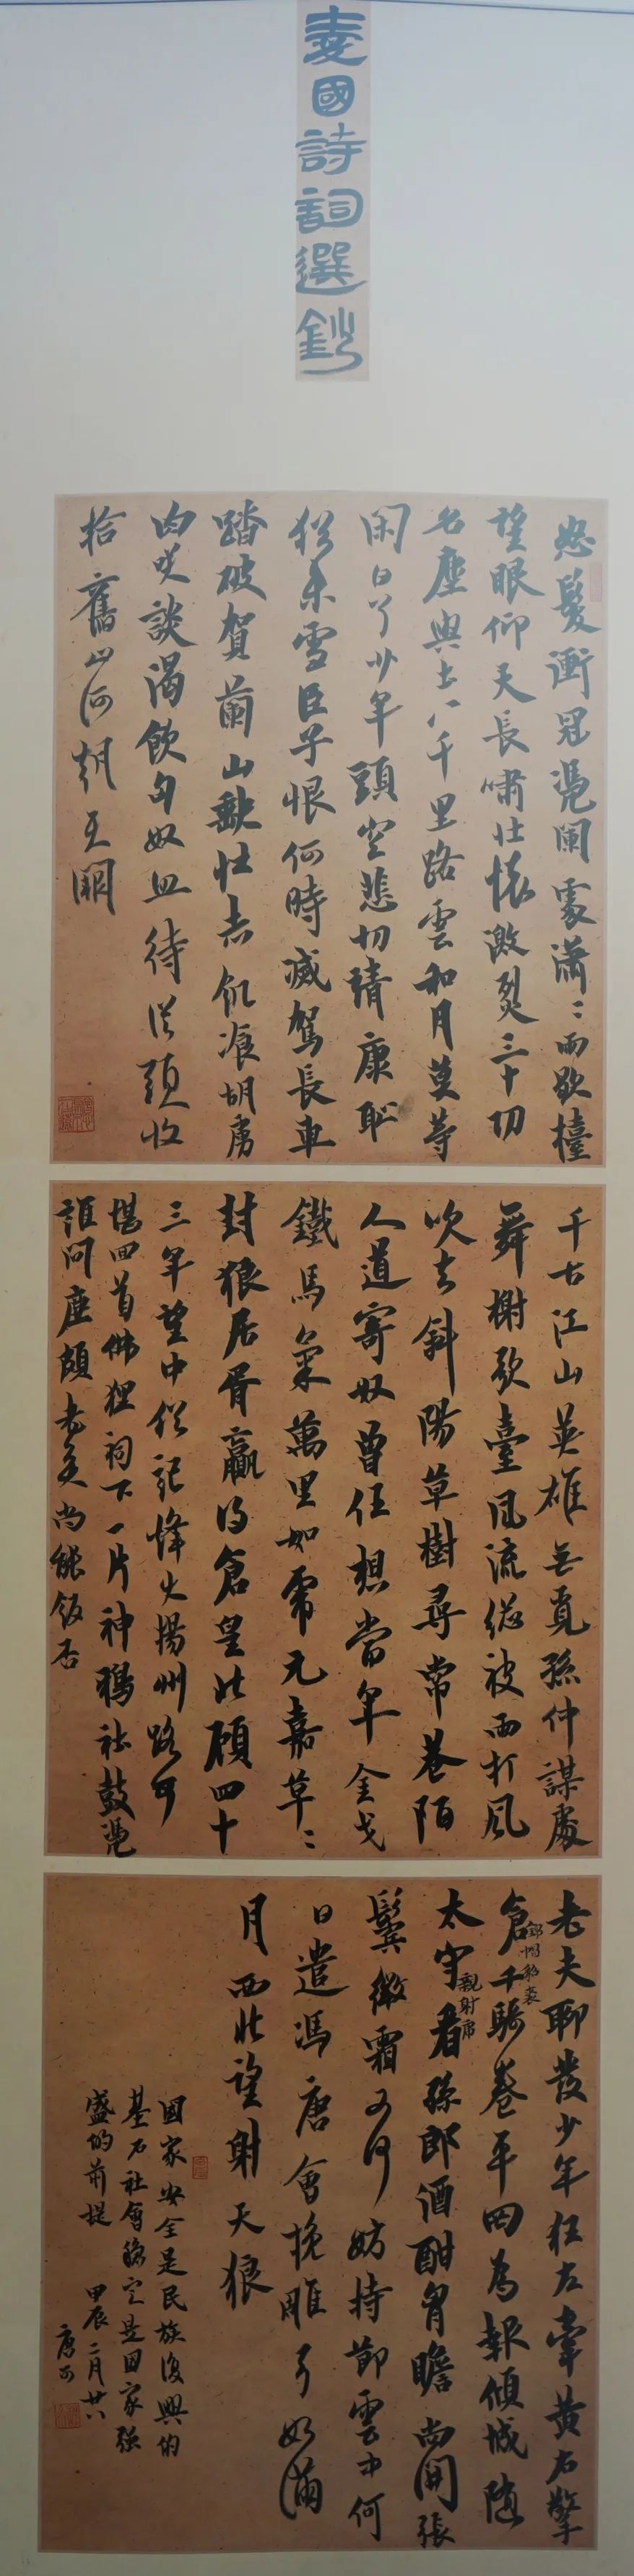 愛國詩詞選鈔
怒髮衝冠憑闌處潇〻雨歇檯
望眼仰天長嘯壮懷激烈三十功
名塵與土八千里路雲和月莫等
闲白了少年頭空悲切靖康恥
猶未雪臣子恨何時滅駕長車
踏破賀蘭山缺壮志飢飡胡虜
肉笑談渴飲匈奴血待從頭收
拾舊山河朝天闕
千古江山英雄無覓孫仲謀處
舞榭歌臺風流總被雨打風
吹去斜陽草樹尋常巷陌
人道寄奴曾住想當年金戈
鐵馬氣萬里如虎元嘉草〻
封狼居胥贏得倉皇北顧四十
三年望中猶記烽火揚州路可
堪回首佛狸祠下一片神鴉社鼓憑
誰問廉頗老矣尚能飯否
老夫聊發少年狂左牽黃右擎
倉千騎卷平岡為報傾城随
錦帽貂裘
太守看孫郎酒酣胷膽尚開張
親射虎
鬢微霜又何妨持節雲中何
日遣馮唐會挽雕弓如滿
月西北望射天狼
國家安全是民族復興的
基石社會穩定是国家强
盛的前提
甲辰二月廿八